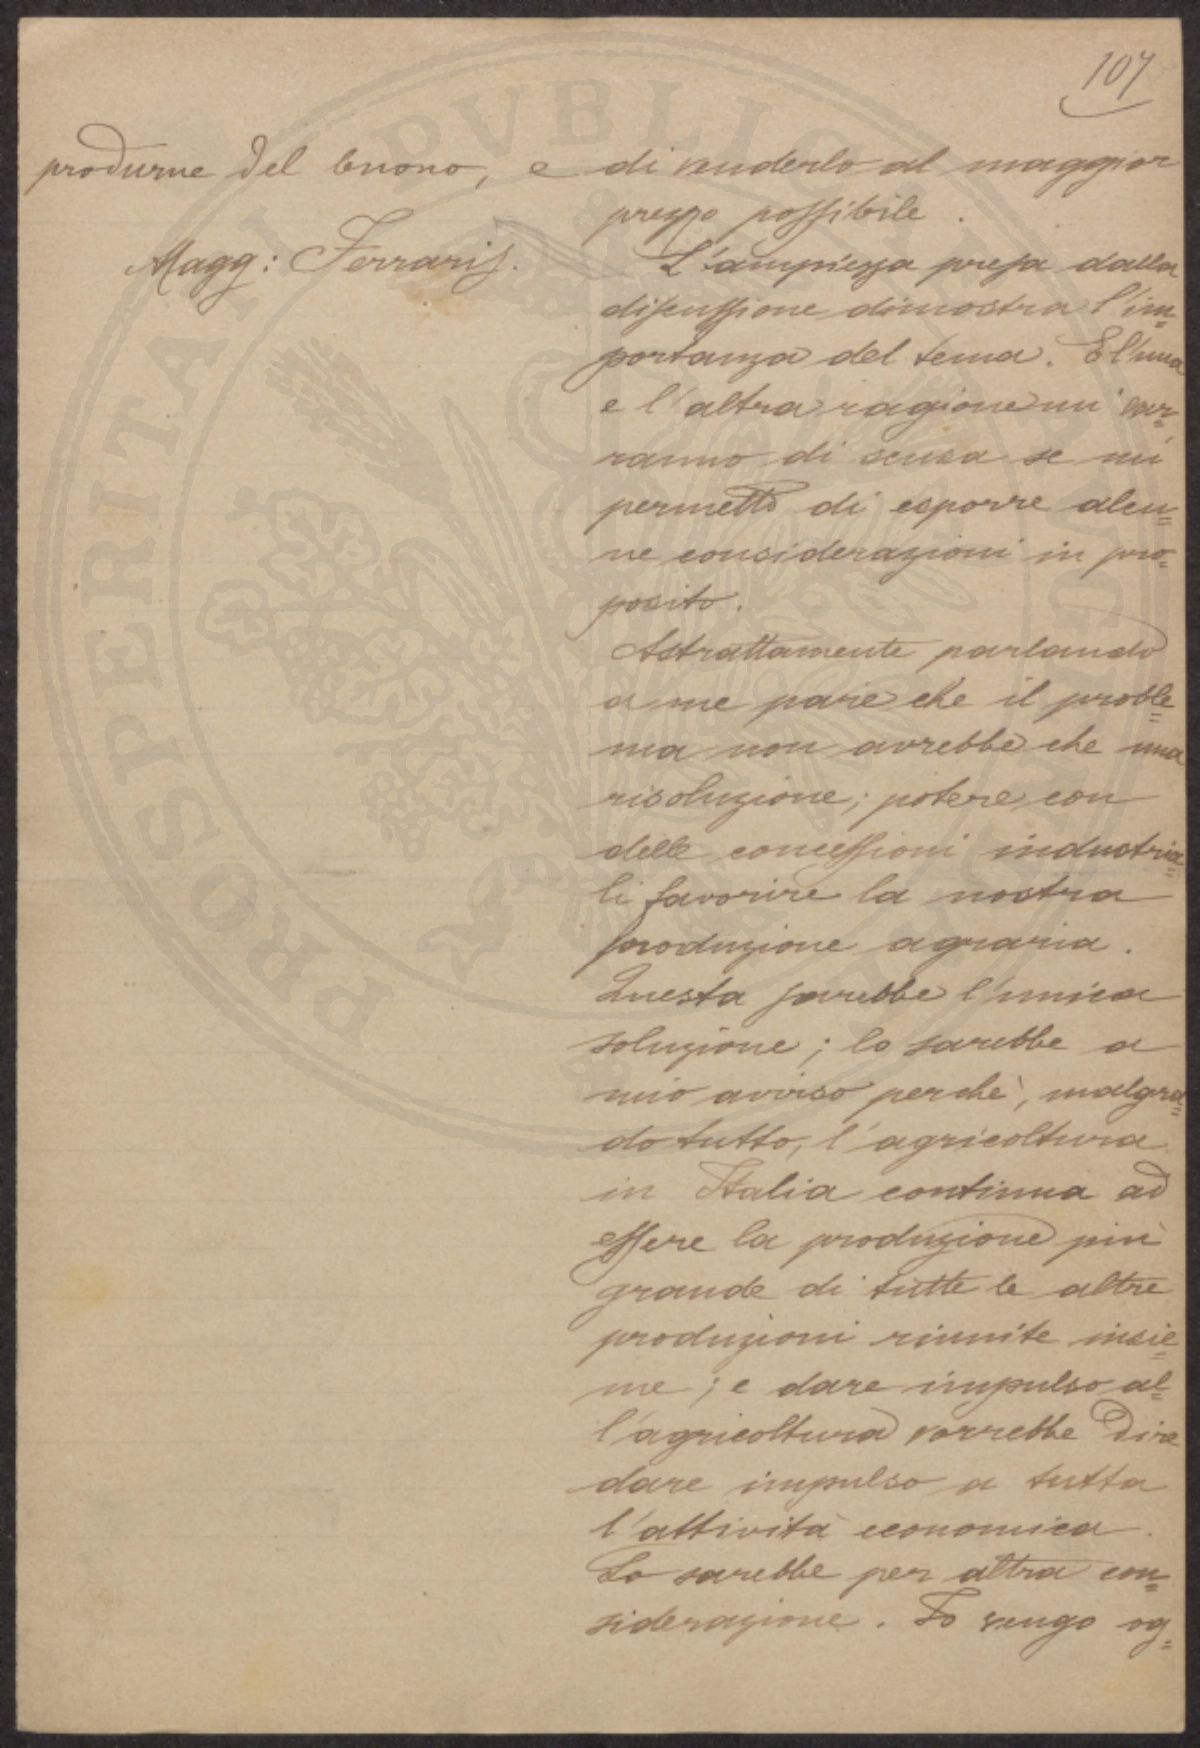 107
produrne del buono, e di venderlo al maggior
prezzo possibile.
Magg: Ferraris. L'ampiezza presa dalla
discussione dimostra l'im=
portanza del tema. E l'una
e l'altra ragione mi var=
ranno di scusa se mi
permetto di esporre alcu=
ne considerazioni in pro=
posito.
Astrattamente parlando
a me pare che il proble=
ma non avrebbe che una
risoluzione; potere con
delle concessioni industria=
li favorire la nostra
produzione agraria.
Questa sarebbe l'unica
soluzione; lo sarebbe a
mio avviso perchè, malgra=
do tutto, l'agricoltura
in Italia continua ad
essere la produzione più
grande di tutte le altre
produzioni riunite insie=
me; e dare impulso al=
l'agricoltura vorrebbe dire
dare impulso a tutta
l'attività economica.
Lo sarebbe per altra con=
siderazione. Io vengo og=
PROSPERITATI PVBLICAE